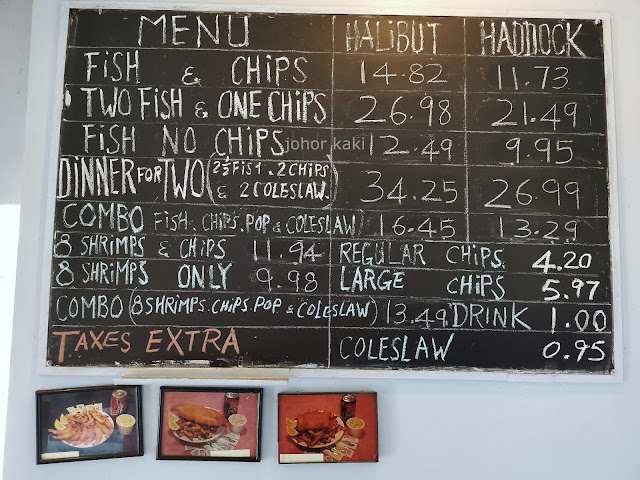 MENU HALIBUT HADDOCK
FISH & CHIPS 14.82 11.73
TWO FISH & ONE CHIPS 26.98 21.49
FISH NO CHIPS 12.49 9.95
johor kaki
DINNER FOR TWO (2½ FISH . 2 CHIPS & 2 COLESLAW.) 34.25 26.99
COMBO FISH. CHIPS. POP & COLESLAW) 16.45 13.29
8 SHRIMPS & CHIPS 11.94 REGULAR CHIPS. 4.20
8 SHRIMPS ONLY 9.98 LARGE CHIPS 5.97
COMBO (8 SHRIMPS. CHIPS. POP & COLESLAW) 13.49 DRINK 1.00
TAXES EXTRA COLESLAW 0.95